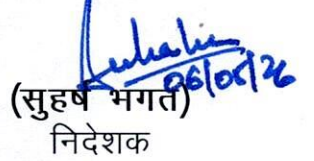 06/05/26
(सुहर्ष भगत)
निदेशक